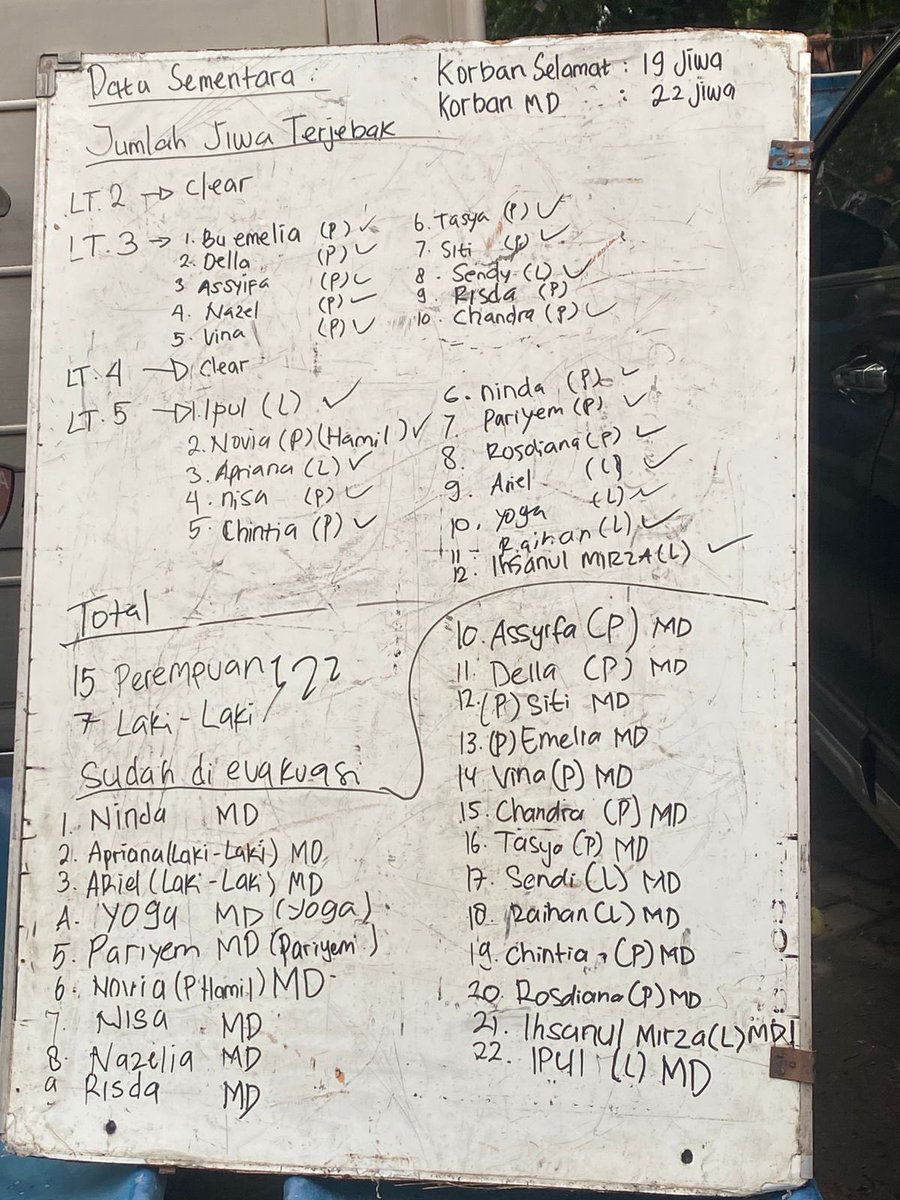 Data Sementara :
Korban Selamat : 19 Jiwa
Korban MD : 22 jiwa
Jumlah Jiwa Terjebak
LT. 2 → Clear
LT. 3 → 1. Bu emelia (P) ✓
2. Della (P) ✓
3 Assyifa (P) ✓
4. Nazel (P) ✓
5. Vina (P) ✓
6. Tasya (P) ✓
7. Siti (P) ✓
8. Sendy (L) ✓
9. Risda (P)
10. Chandra (P) ✓
LT. 4 → Clear
LT. 5 → 1. Ipul (L) ✓
2. Novia (P) (Hamil) ✓
3. Apriana (L) ✓
4. nisa (P) ✓
5. Chintia (P) ✓
6. ninda (P) ✓
7 Pariyem (P) ✓
8. Rosdiana (P) ✓
9. Ariel (L) ✓
10. yoga (L) ✓
11 Raihan (L) ✓
12. Ihsanul MIRZA (L) ✓
Total
15 Perempuan } 22
7 Laki-Laki
Sudah di evakuasi
1. Ninda MD
2. Apriana (Laki-Laki) MD
3. ARiel (Laki-Laki) MD
4. YOGA MD (Yoga)
5. Pariyem MD (Pariyem)
6. Novia (P Hamil) MD
7. Nisa MD
8. Nazelia MD
9 Risda MD
10. Assyifa (P) MD
11. Della (P) MD
12. (P) Siti MD
13. (P) Emelia MD
14 Vina (P) MD
15. Chandra (P) MD
16. Tasya (P) MD
17. Sendi (L) MD
18. Raihan (L) MD
19. Chintia, (P) MD
20. Rosdiana (P) MD
21. Ihsanul Mirza (L) MD
22. IPUL (L) MD